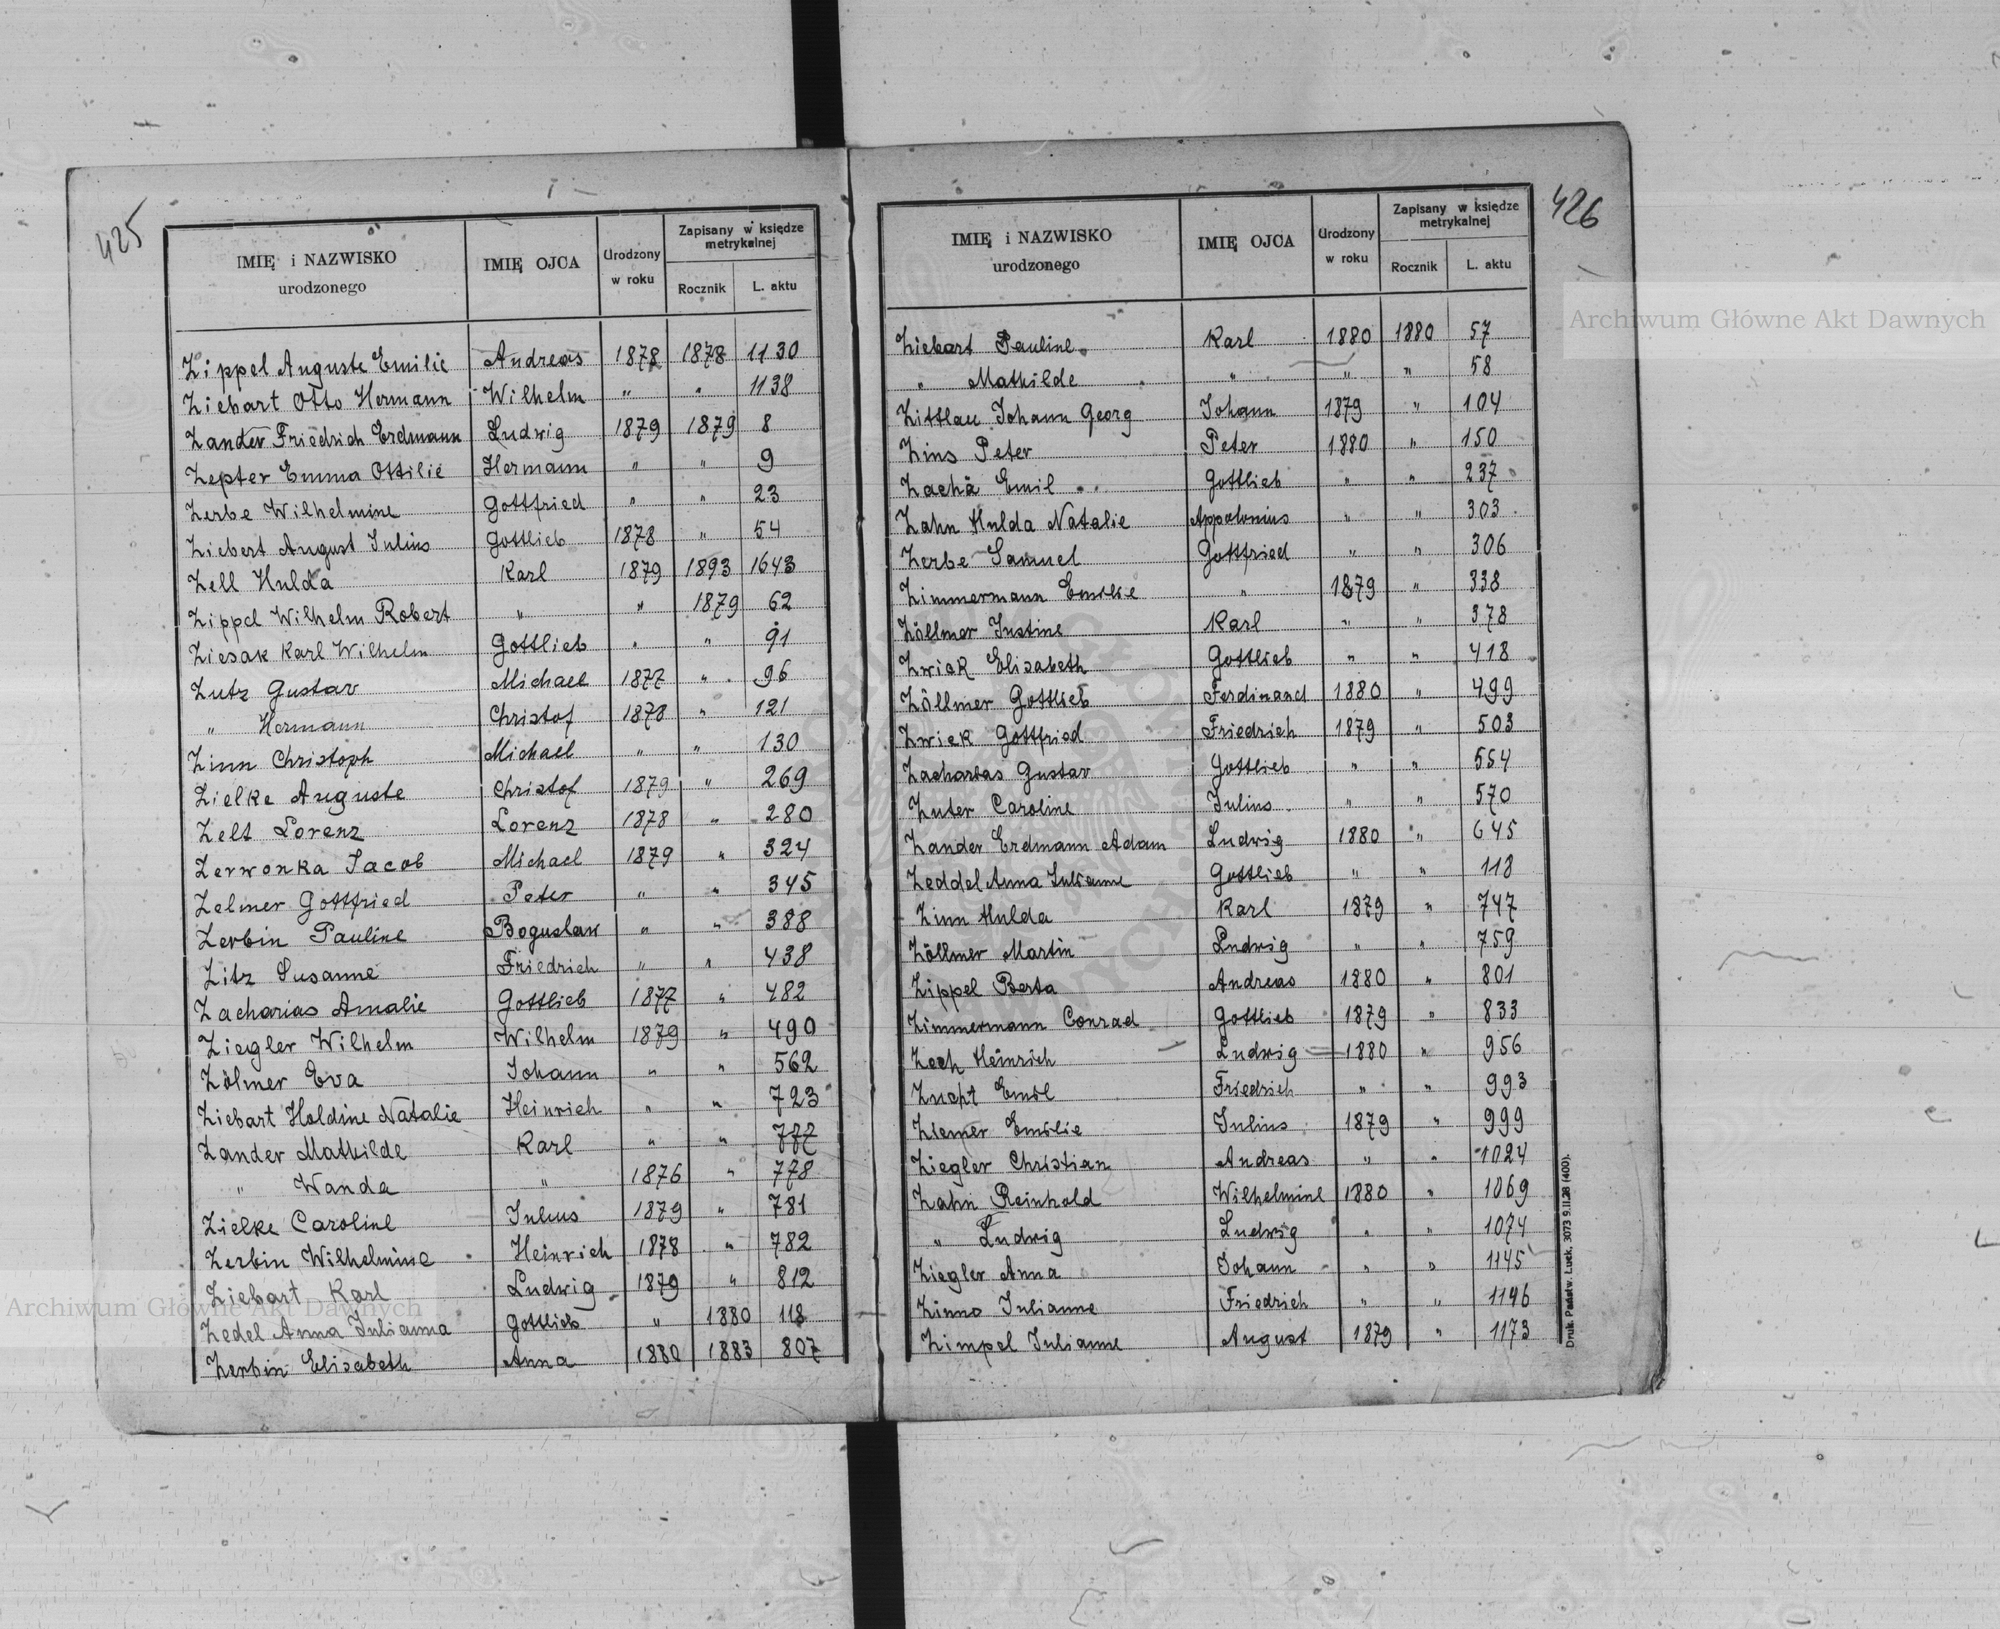 425
IMIĘ i NAZWISKO urodzonego | IMIĘ OJCA | Urodzony w roku | Zapisany w księdze metrykalnej
Rocznik | L. aktu
Zippel Auguste Emilie | Andreas | 1878 | 1878 | 1130
Ziebart Otto Hermann | Wilhelm | " | " | 1138
Zander Friedrich Erdmann | Ludwig | 1879 | 1879 | 8
Zepter Emma Ottilie | Hermann | " | " | 9
Zerbe Wilhelmine | Gottfried | " | " | 23
Ziebert August Julius | Gottlieb | 1878 | " | 54
Zell Hulda | Karl | 1879 | 1893 | 1643
Zippel Wilhelm Robert | " | " | 1879 | 62
Ziesak Karl Wilhelm | Gottlieb | " | " | 91
Zutz Gustav | Michael | 1877 | " | 96
" Hermann | Christof | 1878 | " | 121
Zinn Christoph | Michael | " | " | 130
Zielke Auguste | Christof | 1879 | " | 269
Zelt Lorenz | Lorenz | 1878 | " | 280
Zerwonka Jacob | Michael | 1879 | " | 324
Zelmer Gottfried | Peter | " | " | 345
Zerbin Pauline | Boguslaw | " | " | 388
Zitz Susanne | Friedrich | " | " | 438
Zacharias Amalie | Gottlieb | 1877 | " | 482
Ziegler Wilhelm | Wilhelm | 1879 | " | 490
Zölmer Eva | Johann | " | " | 562
Ziebart Holdine Natalie | Heinrich | " | " | 723
Zander Mathilde | Karl | " | " | 777
" Wanda | " | 1876 | " | 778
Zielke Caroline | Julius | 1879 | " | 781
Zerbin Wilhelmine | Heinrich | 1878 | " | 782
Ziebart Karl | Ludwig | 1879 | " | 812
Zedel Anna Julianna | Gottlieb | " | 1880 | 118
Zerbin Elisabeth | Anna | 1880 | 1883 | 807
426
IMIĘ i NAZWISKO urodzonego | IMIĘ OJCA | Urodzony w roku | Zapisany w księdze metrykalnej
Rocznik | L. aktu
Ziebart Pauline | Karl | 1880 | 1880 | 57
" Mathilde | " | " | " | 58
Zittlau Johann Georg | Johann | 1879 | " | 104
Zins Peter | Peter | 1880 | " | 150
Zachä Emil | Gottlieb | " | " | 237
Zahn Hulda Natalie | Appolonius | " | " | 303
Zerbe Samuel | Gottfried | " | " | 306
Zimmermann Emilie | " | 1879 | " | 338
Zöllmer Justine | Karl | " | " | 378
Zwiek Elisabeth | Gottlieb | " | " | 418
Zöllmer Gottlieb | Ferdinand | 1880 | " | 499
Zwiek Gottfried | Friedrich | 1879 | " | 503
Zacharias Gustav | Gottlieb | " | " | 554
Zuter Caroline | Julius | " | " | 570
Zander Erdmann Adam | Ludwig | 1880 | " | 645
Zeddel Anna Julianne | Gottlieb | " | " | 118
Zinn Hulda | Karl | 1879 | " | 747
Zöllmer Martin | Ludwig | " | " | 759
Zippel Berta | Andreas | 1880 | " | 801
Zimmermann Conrad | Gottlieb | 1879 | " | 833
Zech Heinrich | Ludwig | 1880 | " | 956
Emil | Friedrich | " | " | 993
Ziemer Emilie | Julius | 1879 | " | 999
Ziegler Christian | Andreas | " | " | 1024
Zahn Reinhold | Wilhelmine | 1880 | " | 1069
" Ludwig | Ludwig | " | " | 1074
Ziegler Anna | Johann | " | " | 1145
Zinno Julianne | Friedrich | " | " | 1146
Zimpel Julianne | August | 1879 | " | 1173
Druk. Państw. Łuck. 3073 9.II.28 (400).
Archiwum Główne Akt Dawnych
Archiwum Główne Akt Dawnych